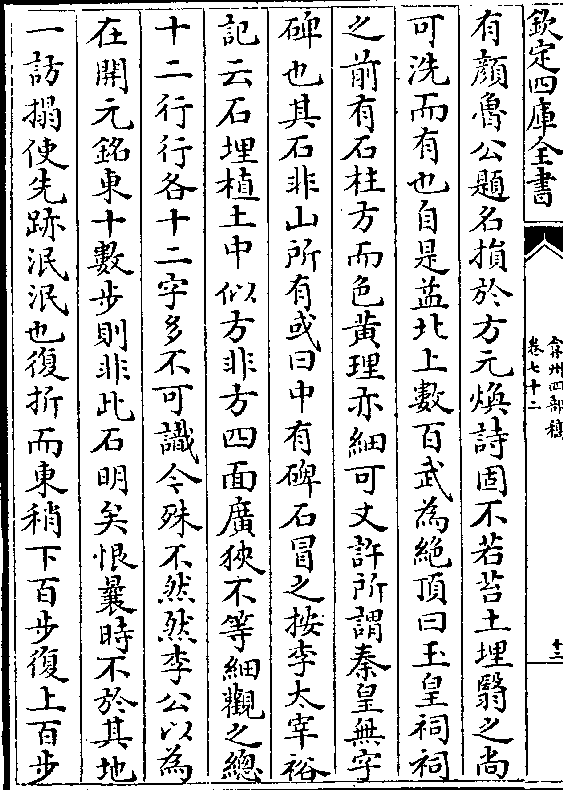 欽定四庫全書
弇州四部稿
卷七十二
十三
有顏魯公題名損於方元煥詩固不若苔土埋翳之尚
可洗而有也自是益北上數百武為絶頂曰玉皇祠祠
之前有石柱方而色黄理亦細可丈許所謂秦皇無字
碑也其石非山所有或曰中有碑石冒之按李太宰裕
記云石埋植土中似方非方四面廣狹不等細觀之總
十二行行各十二字多不可識今殊不然然李公以為
在開元銘東十數步則非此石明矣恨曩時不於其地
一訪搨使先跡泯泯也復折而東稍下百步復上百步